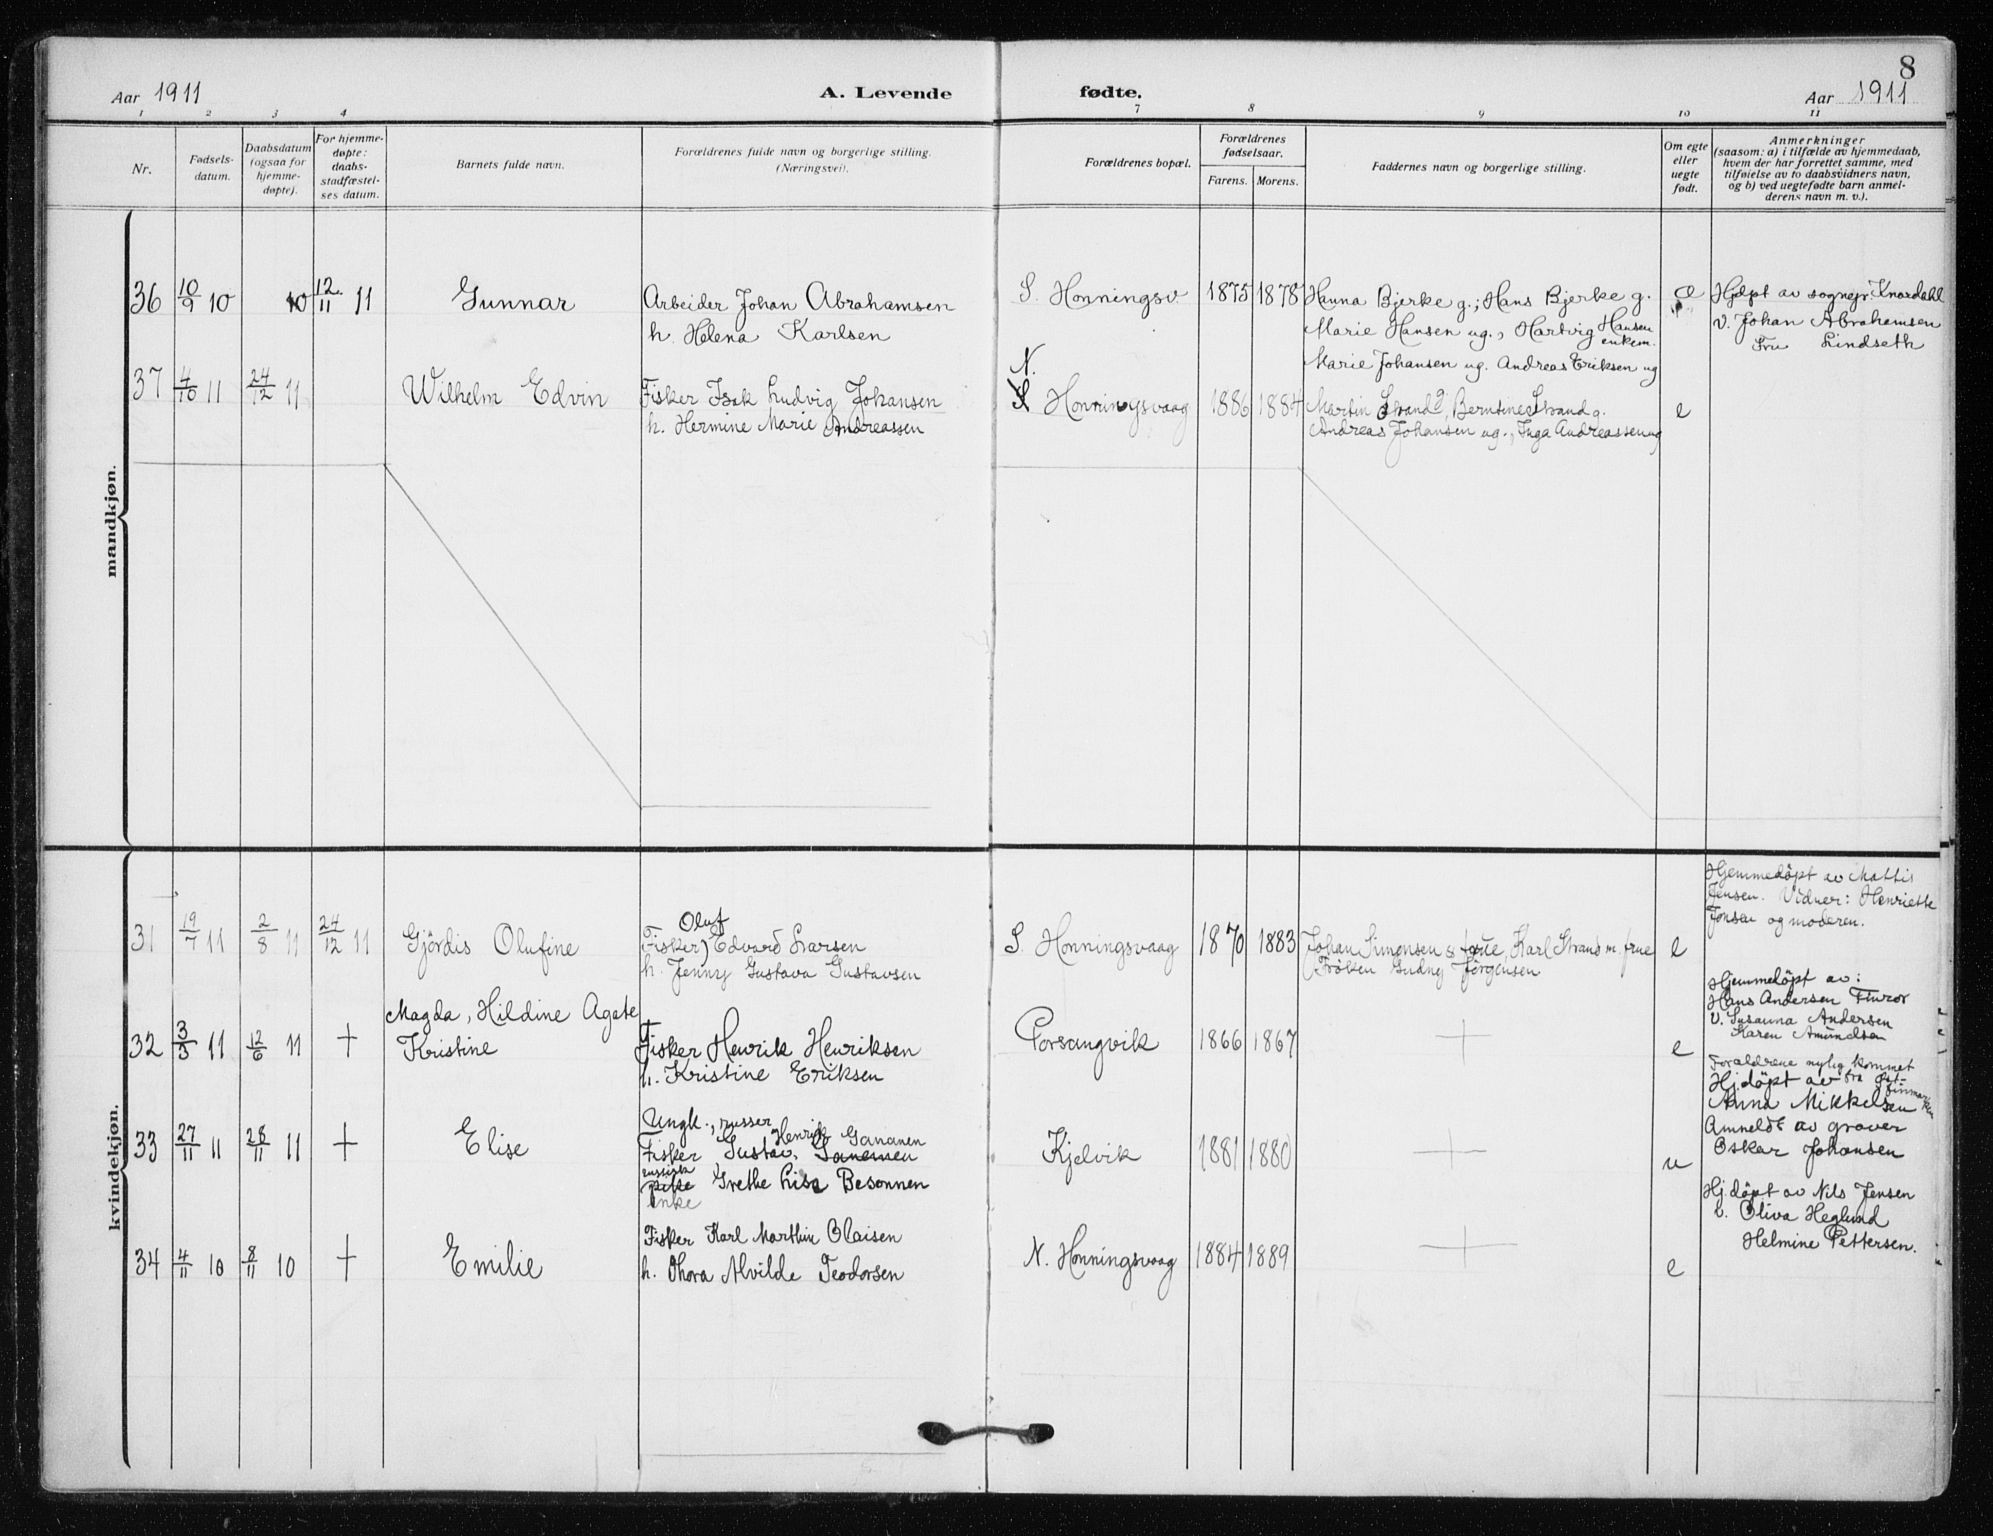 8
Aar 1911
A. Levende fødte.
Aar 1911
1 2 3 4 7 8 9 10 11
Nr.
Fødsels-
datum.
Daabsdatum
(ogsaa for
hjemme-
døpte).
For hjemme-
døpte:
daabs-
stadfæstel-
ses datum.
Barnets fulde navn.
Forældrenes fulde navn og borgerlige stilling.
(Næringsvei).
Forældrenes bopæl.
Forældrenes
fødselsaar.
Farens. Morens.
Faddernes navn og borgerlige stilling.
Om egte
eller
uegte
født.
Anmerkninger
(saasom: a) i tilfælde av hjemmedaab,
hvem der har forrettet samme, med
tilføielse av to daabsvidners navn,
og b) ved uegtefødte barn anmel-
derens navn m. v.).
mandkjøn.
36 10/9 10 10 12/11 11 Gunnar
Arbeider Johan Abrahamsen
h. Helena Karlsen
S. Honningsv. 1875 1878
Hanna Bjerke g.; Hans Bjerke g.
Marie Hansen ug., Hartvig Hansen
enkem.
e
Hjdøpt av sognepr. Knardahl
v. Johan Abrahamsen
Fru Lindseth
37 4/10 11 24/12 11 Wilhelm Edvin
Fisker Isak Ludvig Johansen
h. Hermine Marie Andreassen
N.
S Honningsvaag 1886 1884
Marie Johansen ug. Andreas Eriksen ug
Martin Strand g, Berntine Strand g.
Andreas Johansen ug., Inga Andreassen ug
e
kvindekjøn.
31 19/7 11 2/8 11 24/12 11 Gjördis Olufine
Oluf
Fisker) Edvard Larsen
h. Jenny Gustava Gustavsen
S. Honningsvaag 1870 1883
Johan Simonsen & frue, Karl Strand m. frue
Fröken Gudny Jörgensen
e
Hjemmedöpt av Mattis
Jensen. Vidner: Henriette
Jensen og moderen.
32 3/3 11 12/6 11 +
Magda, Hildine Agate
Kristine
Fisker Henrik Henriksen
h. Kristine Eriksen
Porsangvik 1866 1867 + e
Hjemmedöpt av:
Hans Andersen
v. Susanna Andersen
Karen Amundsen
33 27/11 11 28/11 11 + Elise
Ungk., russer
Henrik
Fisker Gustav, Gananen
russisk
pike Grethe Lisa Besonnen
enke
Kjelvik 1881 1880 + u
Forældrene nylig kommet
fra Öst-
finmarken
Hj.döpt av
Anna Mikkelsen
Anmeldt av graver
Oskar Johansen
34 4/11 10 8/11 10 + Emilie
Fisker Karl Marthin Olaisen
h. Thora Alvilde Teodorsen
N. Honningsvaag 1884 1889 + e
Hj.döpt av Nils Jensen
v. Oliva Heglund
Helmine Pettersen.